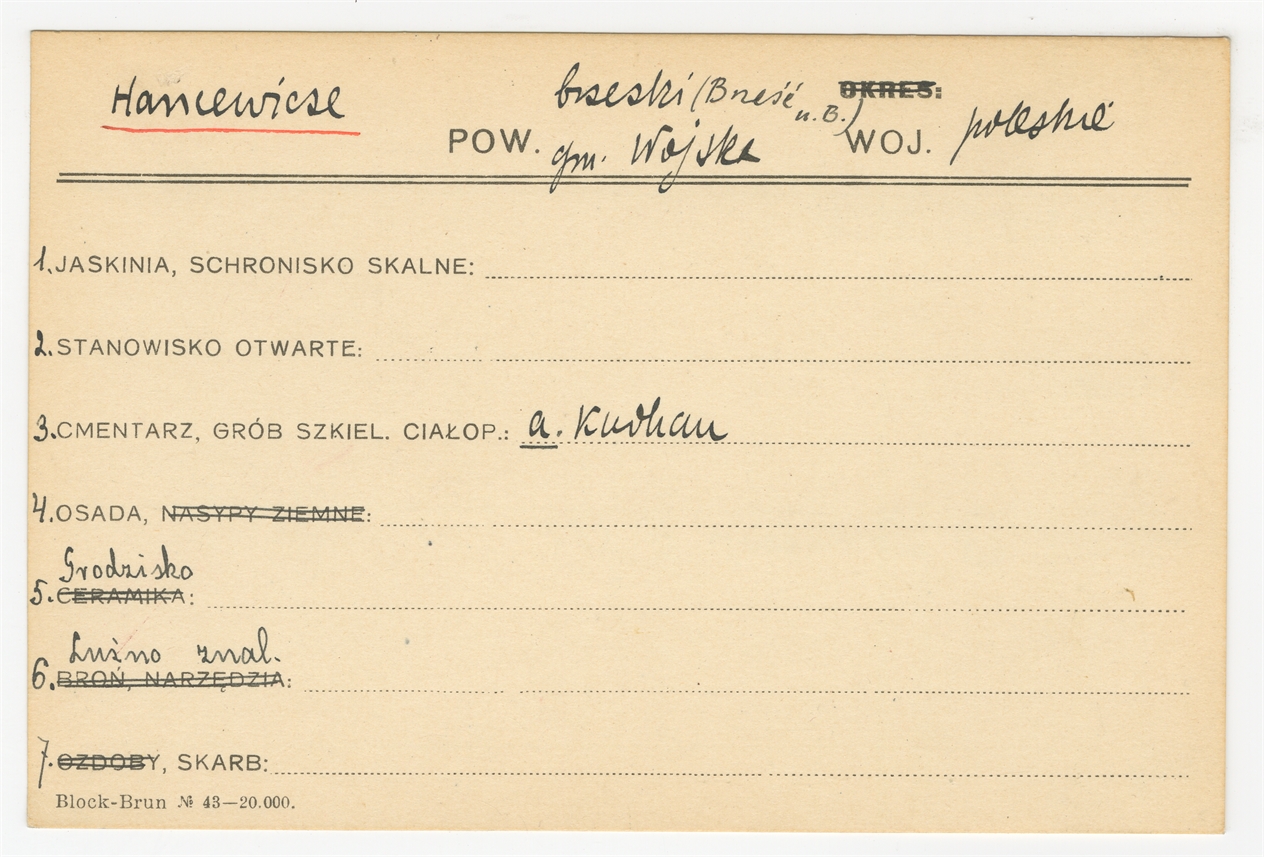 Hancewicze
brzeski (Brześć n. B.)
OKRES:
POW. gm. Wojska WOJ. poleskie
1. JASKINIA, SCHRONISKO SKALNE:
2. STANOWISKO OTWARTE:
3. CMENTARZ, GRÓB SZKIEL. CIAŁOP.: a. Kurhan
4. OSADA, NASYPY ZIEMNE:
Grodzisko
5. CERAMIKA:
Luźno znal.
6. BROŃ, NARZĘDZIA:
7. OZDOBY, SKARB:
Block-Brun № 43—20.000.